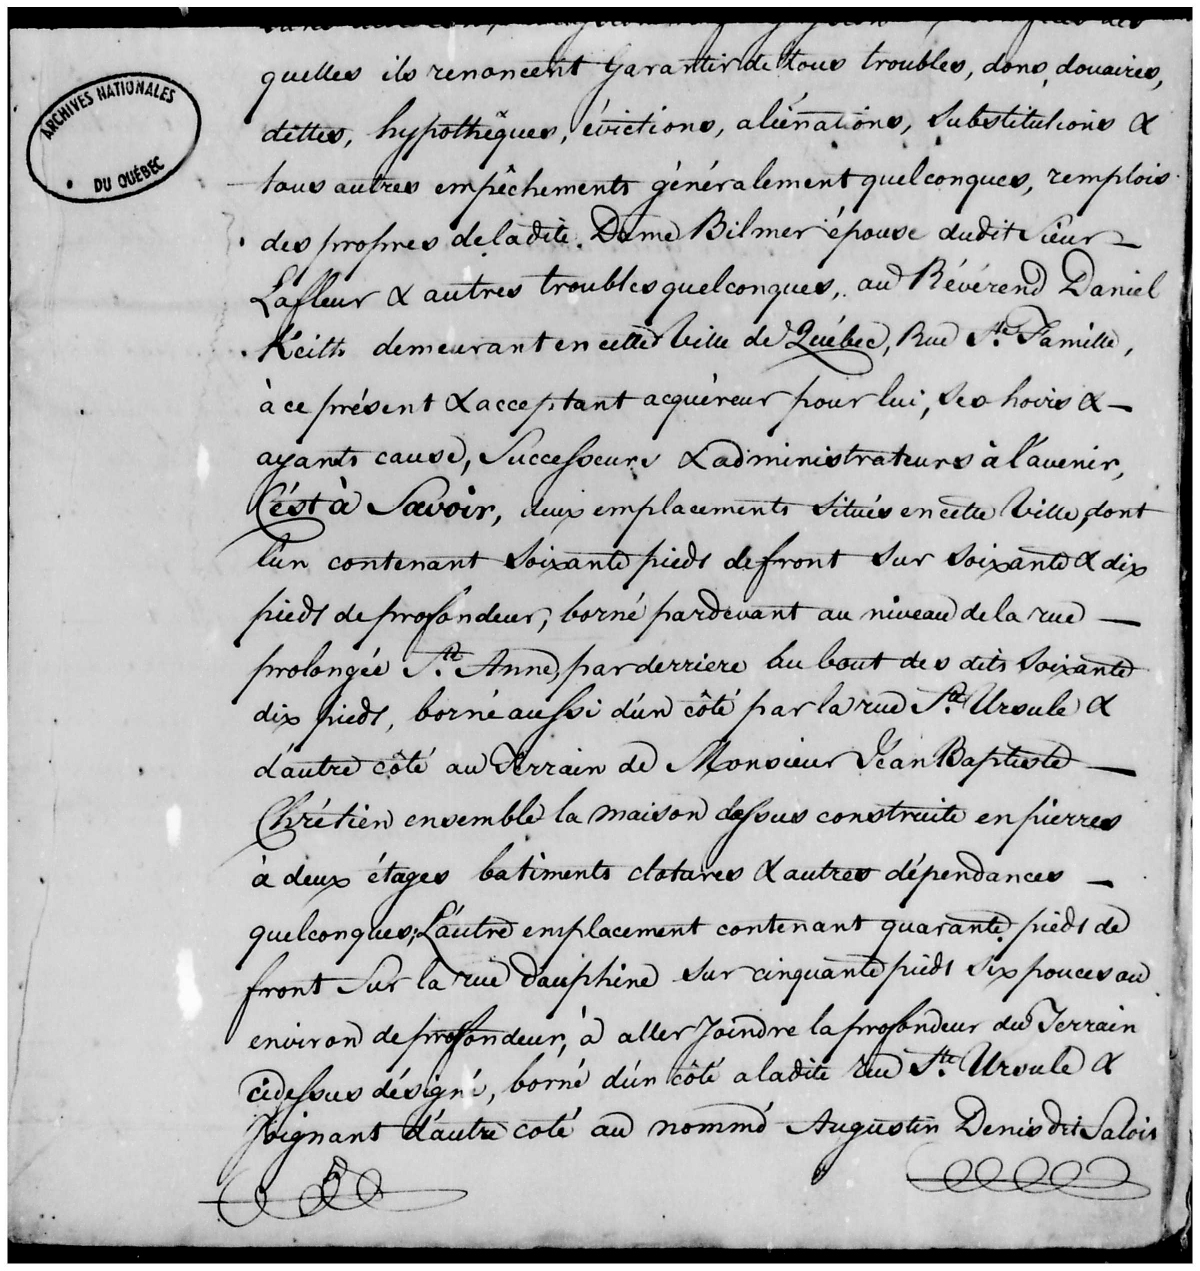 quelles ils renoncent Garantir de tous troubles, dons, douaires,
ARCHIVES NATIONALES
DU QUÉBEC
dettes, hypothêques, évictions, aliénations, Substitutions &
tous autres empêchements généralement quelconques, remplois
des propres de ladite. Dame Bilmer épouse dudit Sieur –
Lafleur & autres troubles quelconques, au Révérend Daniel
Keith demeurant en cette Ville de Québec, Rue Ste. Famille,
à ce présent & acceptant acquéreur pour lui, ses hoirs & –
ayants cause, Successeurs & administrateurs à l'avenir,
C'ést à Savoir, deux emplacements situés en cette Ville, dont
l'un contenant soixante pieds de front sur soixante & dix
pieds de profondeur, borné pardevant au niveau de la rue –
prolongée Ste. Anne, par derriere au bout des dits soixante
dix pieds, borné aussi d'un côté par la rue Ste. Ursule &
d'autre côté au Terrain de Monsieur Jean Baptiste –
Chrétien ensemble la maison dessus construite en pierres
à deux étages batiments clotures & autres dépendances –
quelconques; L'autre emplacement contenant quarante pieds de
front Sur la rue Dauphine sur cinquante pieds six pouces ou
environ de profondeur, à aller Joindre la profondeur du Terrain
cidessus désigné, borné d'un côté a ladite rue Ste. Ursule &
Joignant d'autre coté au nommé Augustin Denis dit Salois